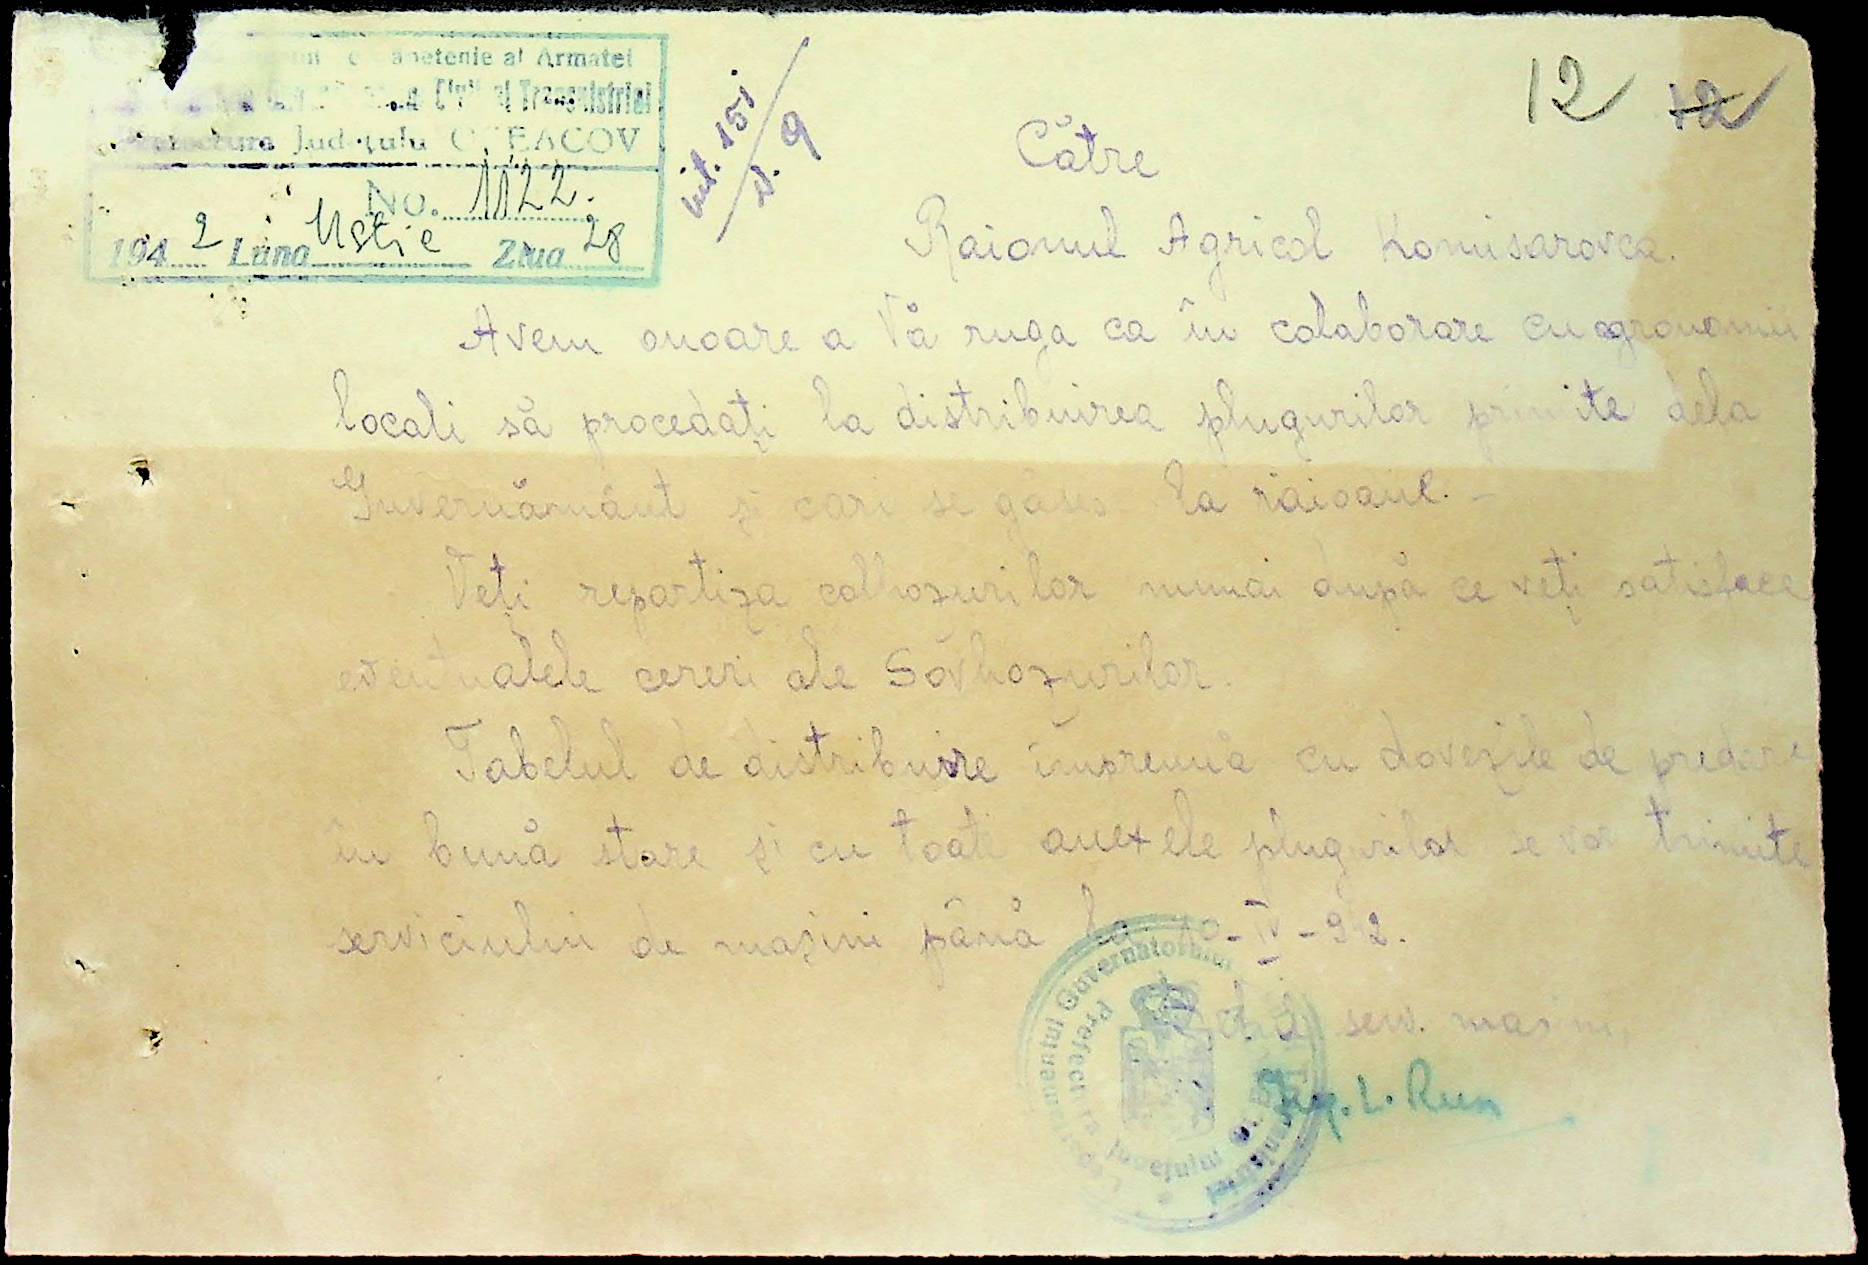 apetenie al Armatei
Civil al Transnistriei
Prefectura Județulu OCEACOV
No. 1122.
1942 Luna Ustie Ziua 28
int. 151
d. 9
12
12
Către
Raionul Agricol Komisarovca.
Avem onoare a Vă ruga ca în colaborare cu agronomii
locali să procedați la distribuirea plugurilor primite dela
Guvernământ și cari se găsesc la raioane. -
Veți repartiza colhozurilor numai după ce veți satisface
eventualele cereri ale Sovhozurilor.
Tabelul de distribuire împreună cu dovezile de predare
în bună stare și cu toate anexele plugurilor se vor trimite
serviciului de mașini până la 10-IV-942.
serv. mașini,
Ing. L. Rus
Guvernatorului Transnistriei
Prefectura Județului